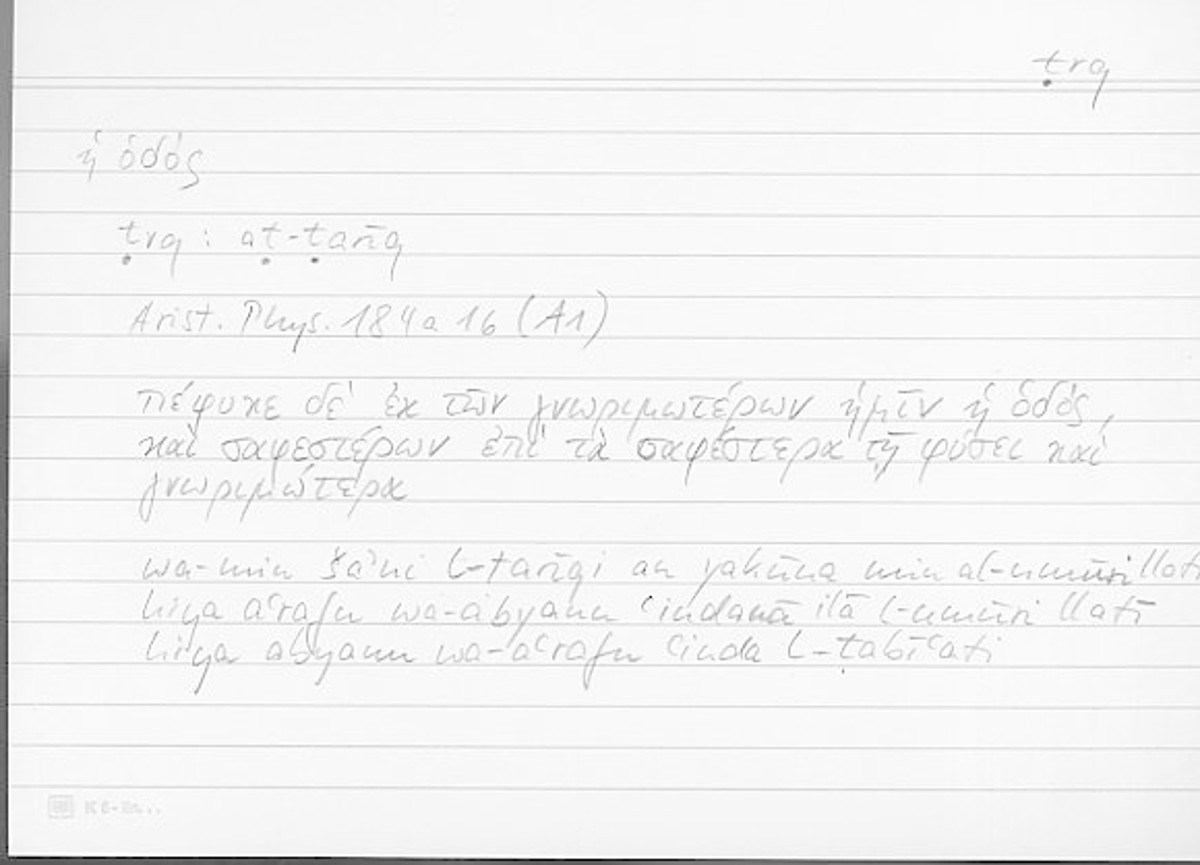 ṭrq
ἡ ὁδός
ṭrq : aṭ-ṭarīq
Arist. Phys. 184a 16 (A1)
πέφυκε δὲ ἐκ τῶν γνωριμωτέρων ἡμῖν ἡ ὁδὸς,
καὶ σαφεστέρων ἐπὶ τὰ σαφέστερα τῇ φύσει καὶ
γνωριμώτερα
wa-min šaʾni l-tarīqi an yakūna min al-umūri llatī
hiya aʿrafu wa-abyanu ʿindanā ilā l-umūri llatī
hiya abyanu wa-aʿrafu ʿinda l-ṭabīʿati